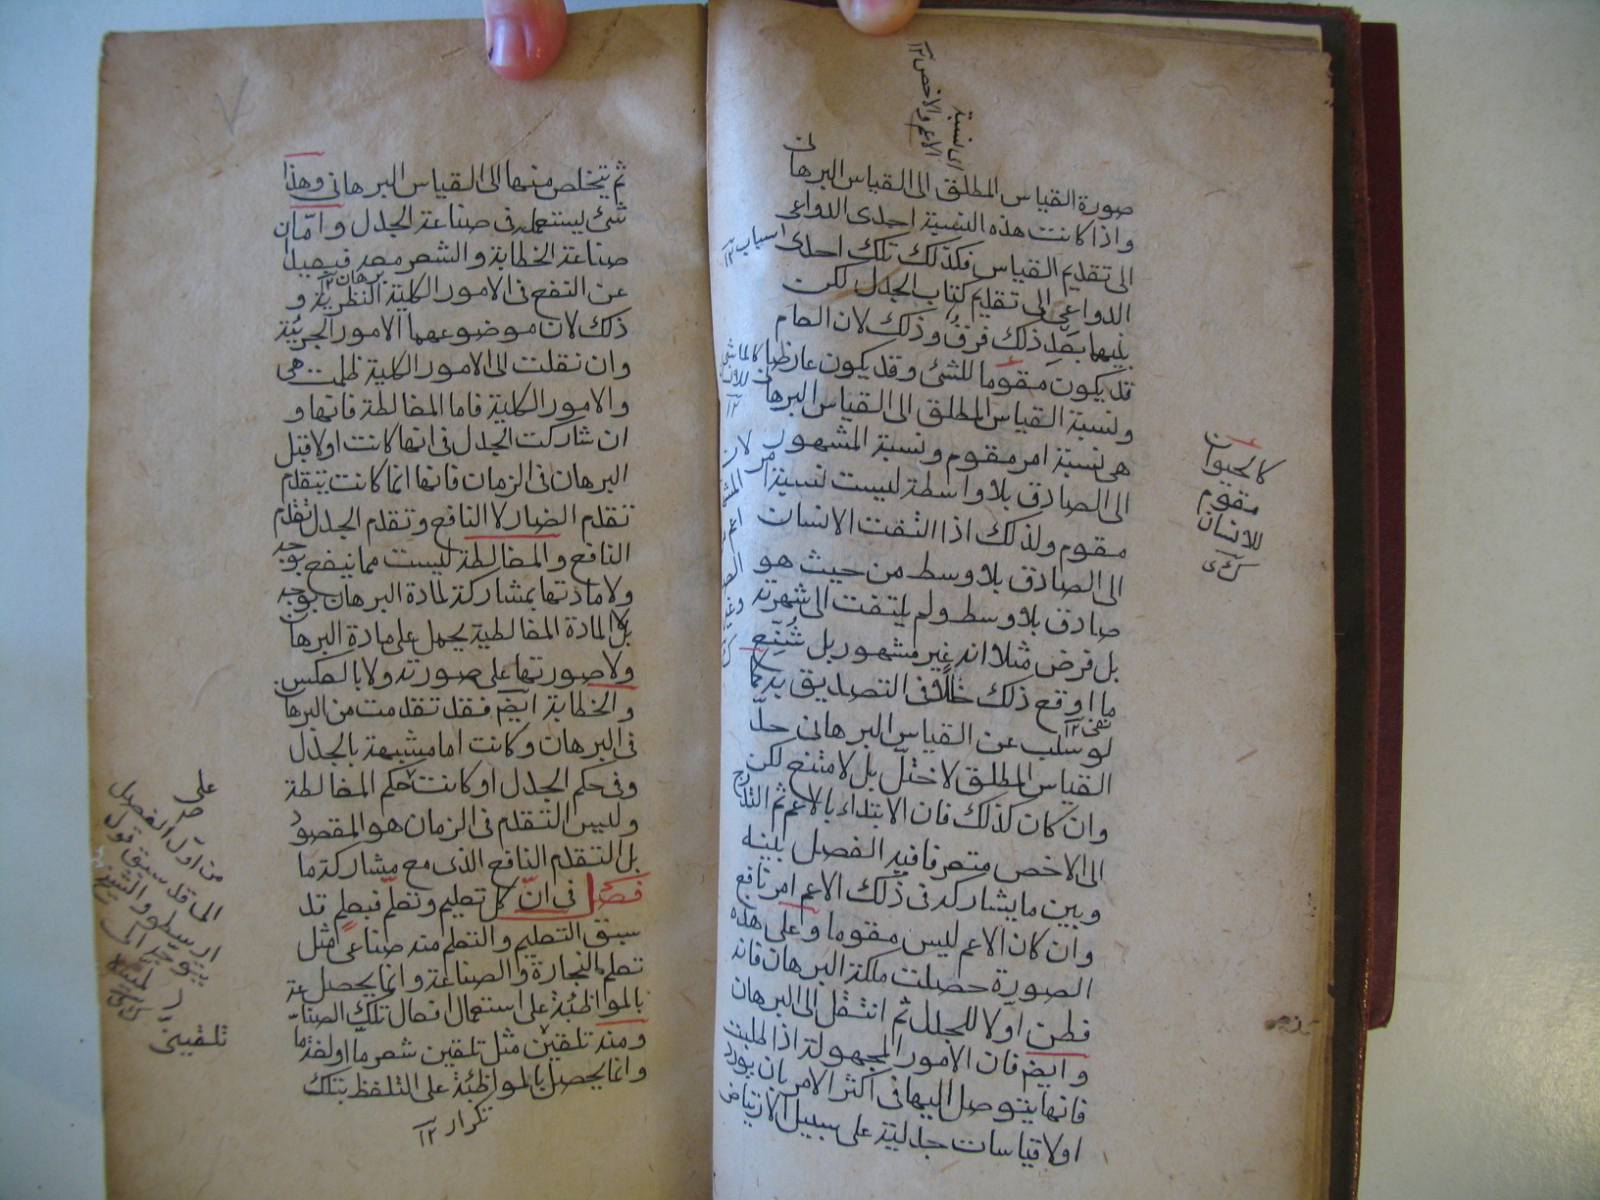 صورة القياس المطلق الى القياس البرهانى
واذا كانت هذه النسبة احدى الدواعى
الى تقديم القياس فكذلك تلك احدى
الدواعى الى تقديم كتاب الجدل لكن
بينهما بعد ذلك فرق وذلك لان العام
قد يكون مقوما للشئ وقد يكون عارضا
ونسبة القياس المطلق الى القياس البرهانى
هى نسبة امر مقوم ونسبة المشهور
الى الصادق بلا واسطة ليست نسبة امر
مقوم ولذلك اذا التفت الانسان
الى الصادق بلا وسط من حيث هو
صادق بلا وسط ولم يلتفت الى شهرته
بل فرض مثلا انه غير مشهور بل شنع
ما اوقع ذلك خللا فى التصديق به كما
لو سلب عن القياس البرهانى حد
القياس المطلق لاختل بل لامتنع لكن
وان كان كذلك فان الابتداء بالاعم ثم التدرج
الى الاخص متعرفا فيه الفصل بينه
وبين ما يشاركه فى ذلك الاعم امر نافع
وان كان الاعم ليس مقوما وعلى هذه
الصورة حصلت ملكة البرهان فانه
فطن اولا للجدل ثم انتقل الى البرهان
وايضم فان الامور المجهولة اذا طلبت
فانها يتوصل اليها فى اكثر الامر بان يورد
اولا قياسات جدلية على سبيل الارتياض
اى نسبة
الاعم والاخص ١٢
اسباب ١٢
كالماشى
للانسان
١٢
كالحيوان
مقوم
للانسان
تغنى ١٢
ثم يتخلص منها الى القياس البرهانى وهذا
شئ يستعمله فى صناعة الجدل واما ان
صناعة الخطابة والشعر معه فبعيدا
عن النفع فى الامور الكلية النظرية و
برهان ١٢
ذلك لان موضوعهما الامور الجزئية
وان نقلت الى الامور الكلية ظلمت هى
والامور الكلية فاما المغالطة فانها و
ان شاركت الجدل فى انها كانت اولا قبل
البرهان فى الزمان فانها انما كانت تتقدم
تقدم الضار لا النافع وتقدم الجدل تقدم
النافع والمغالطة ليست مما ينفع بوجه
ولا مادتها بمشاركة لمادة البرهان بوجه
بل لا المادة المغالطية يحمل على مادة البرها
ولا صورتها على صورته ولا بالعكس
والخطابة ايضم فقد تقدمت من البرها
فى البرهان وكانت اما مشبهة بالجدل
وفى حكم الجدل او كانت حكم المغالطة
وليس التقدم فى الزمان هو المقصود
بل التقدم النافع الذى مع مشاركة ما
فصل فى ان كل تعليم وتعلم فبعلم قد
سبق التعليم والتعلم منه صناعى مثل
تعلم النجارة والصناعة وانما يحصل
بالمواظبة على استعمال افعال تلك الصناعة
ومنه تلقين مثل تلقين شعر ما او لغة ما
وانما يحصل بالمواظبة على التلفظ بتلك
تكرار ١٢
على
من اول الفصل
الى ما قد سبق قول
ارسطو والشيخ
تلقينى